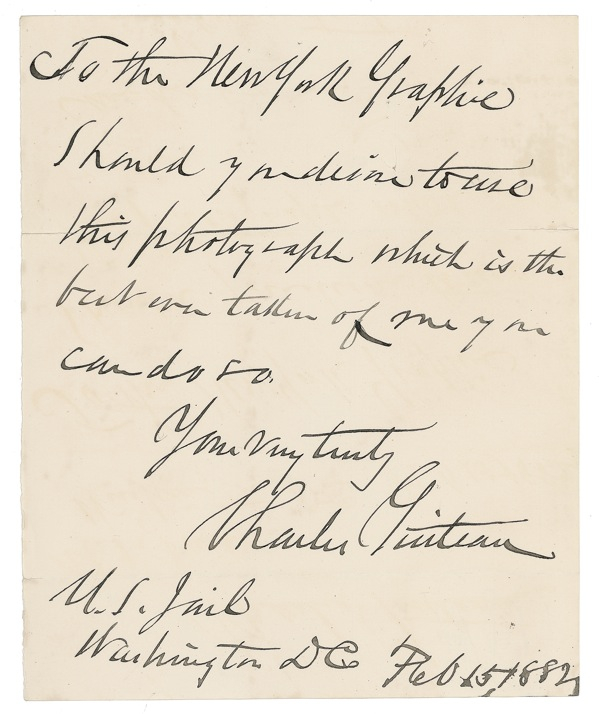 To the New York Graphic
Should you desire to use
this photograph which is the
best ever taken of me you
can do so.
Yours very truly
Charles Guiteau
U.S. Jail
Washington DC Feb 15, 1882,